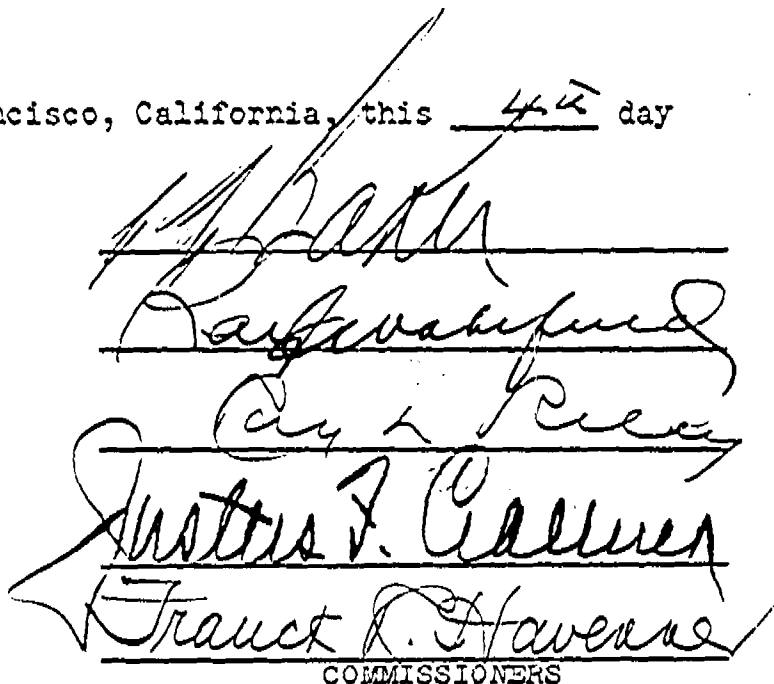 ncisco, California, this 4th day
Baker
Ray L. Riley
Justus F. Craemer
Franck R. Havenner
COMMISSIONERS